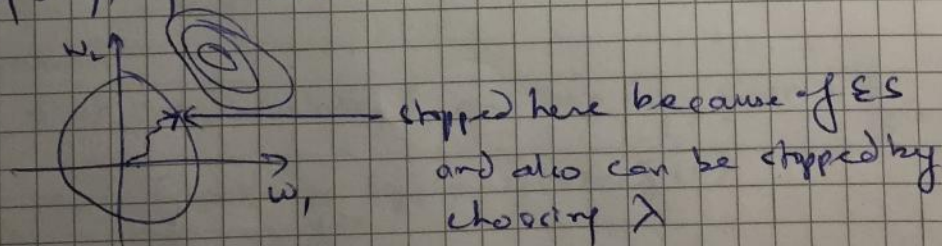 w₂
stopped here because of ES
and also can be stopped by
choosing λ
w₁